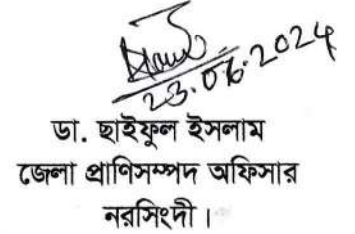 23.06.2024
ডা. ছাইফুল ইসলাম
জেলা প্রাণিসম্পদ অফিসার
নরসিংদী।